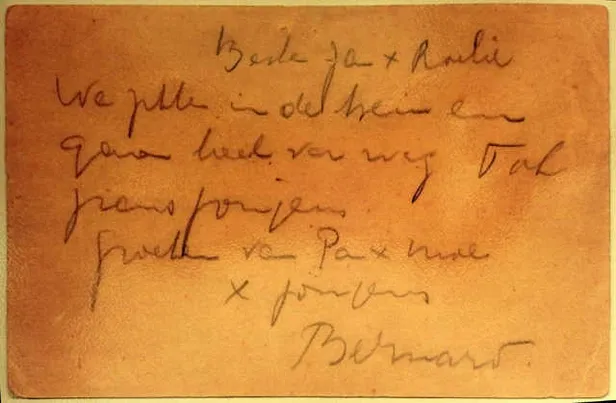 Beste Jan + Roelie
We zitten in de trein en
gaan heel ver weg
jongens
groeten van Pa + moe
+ jongens
Bernard.